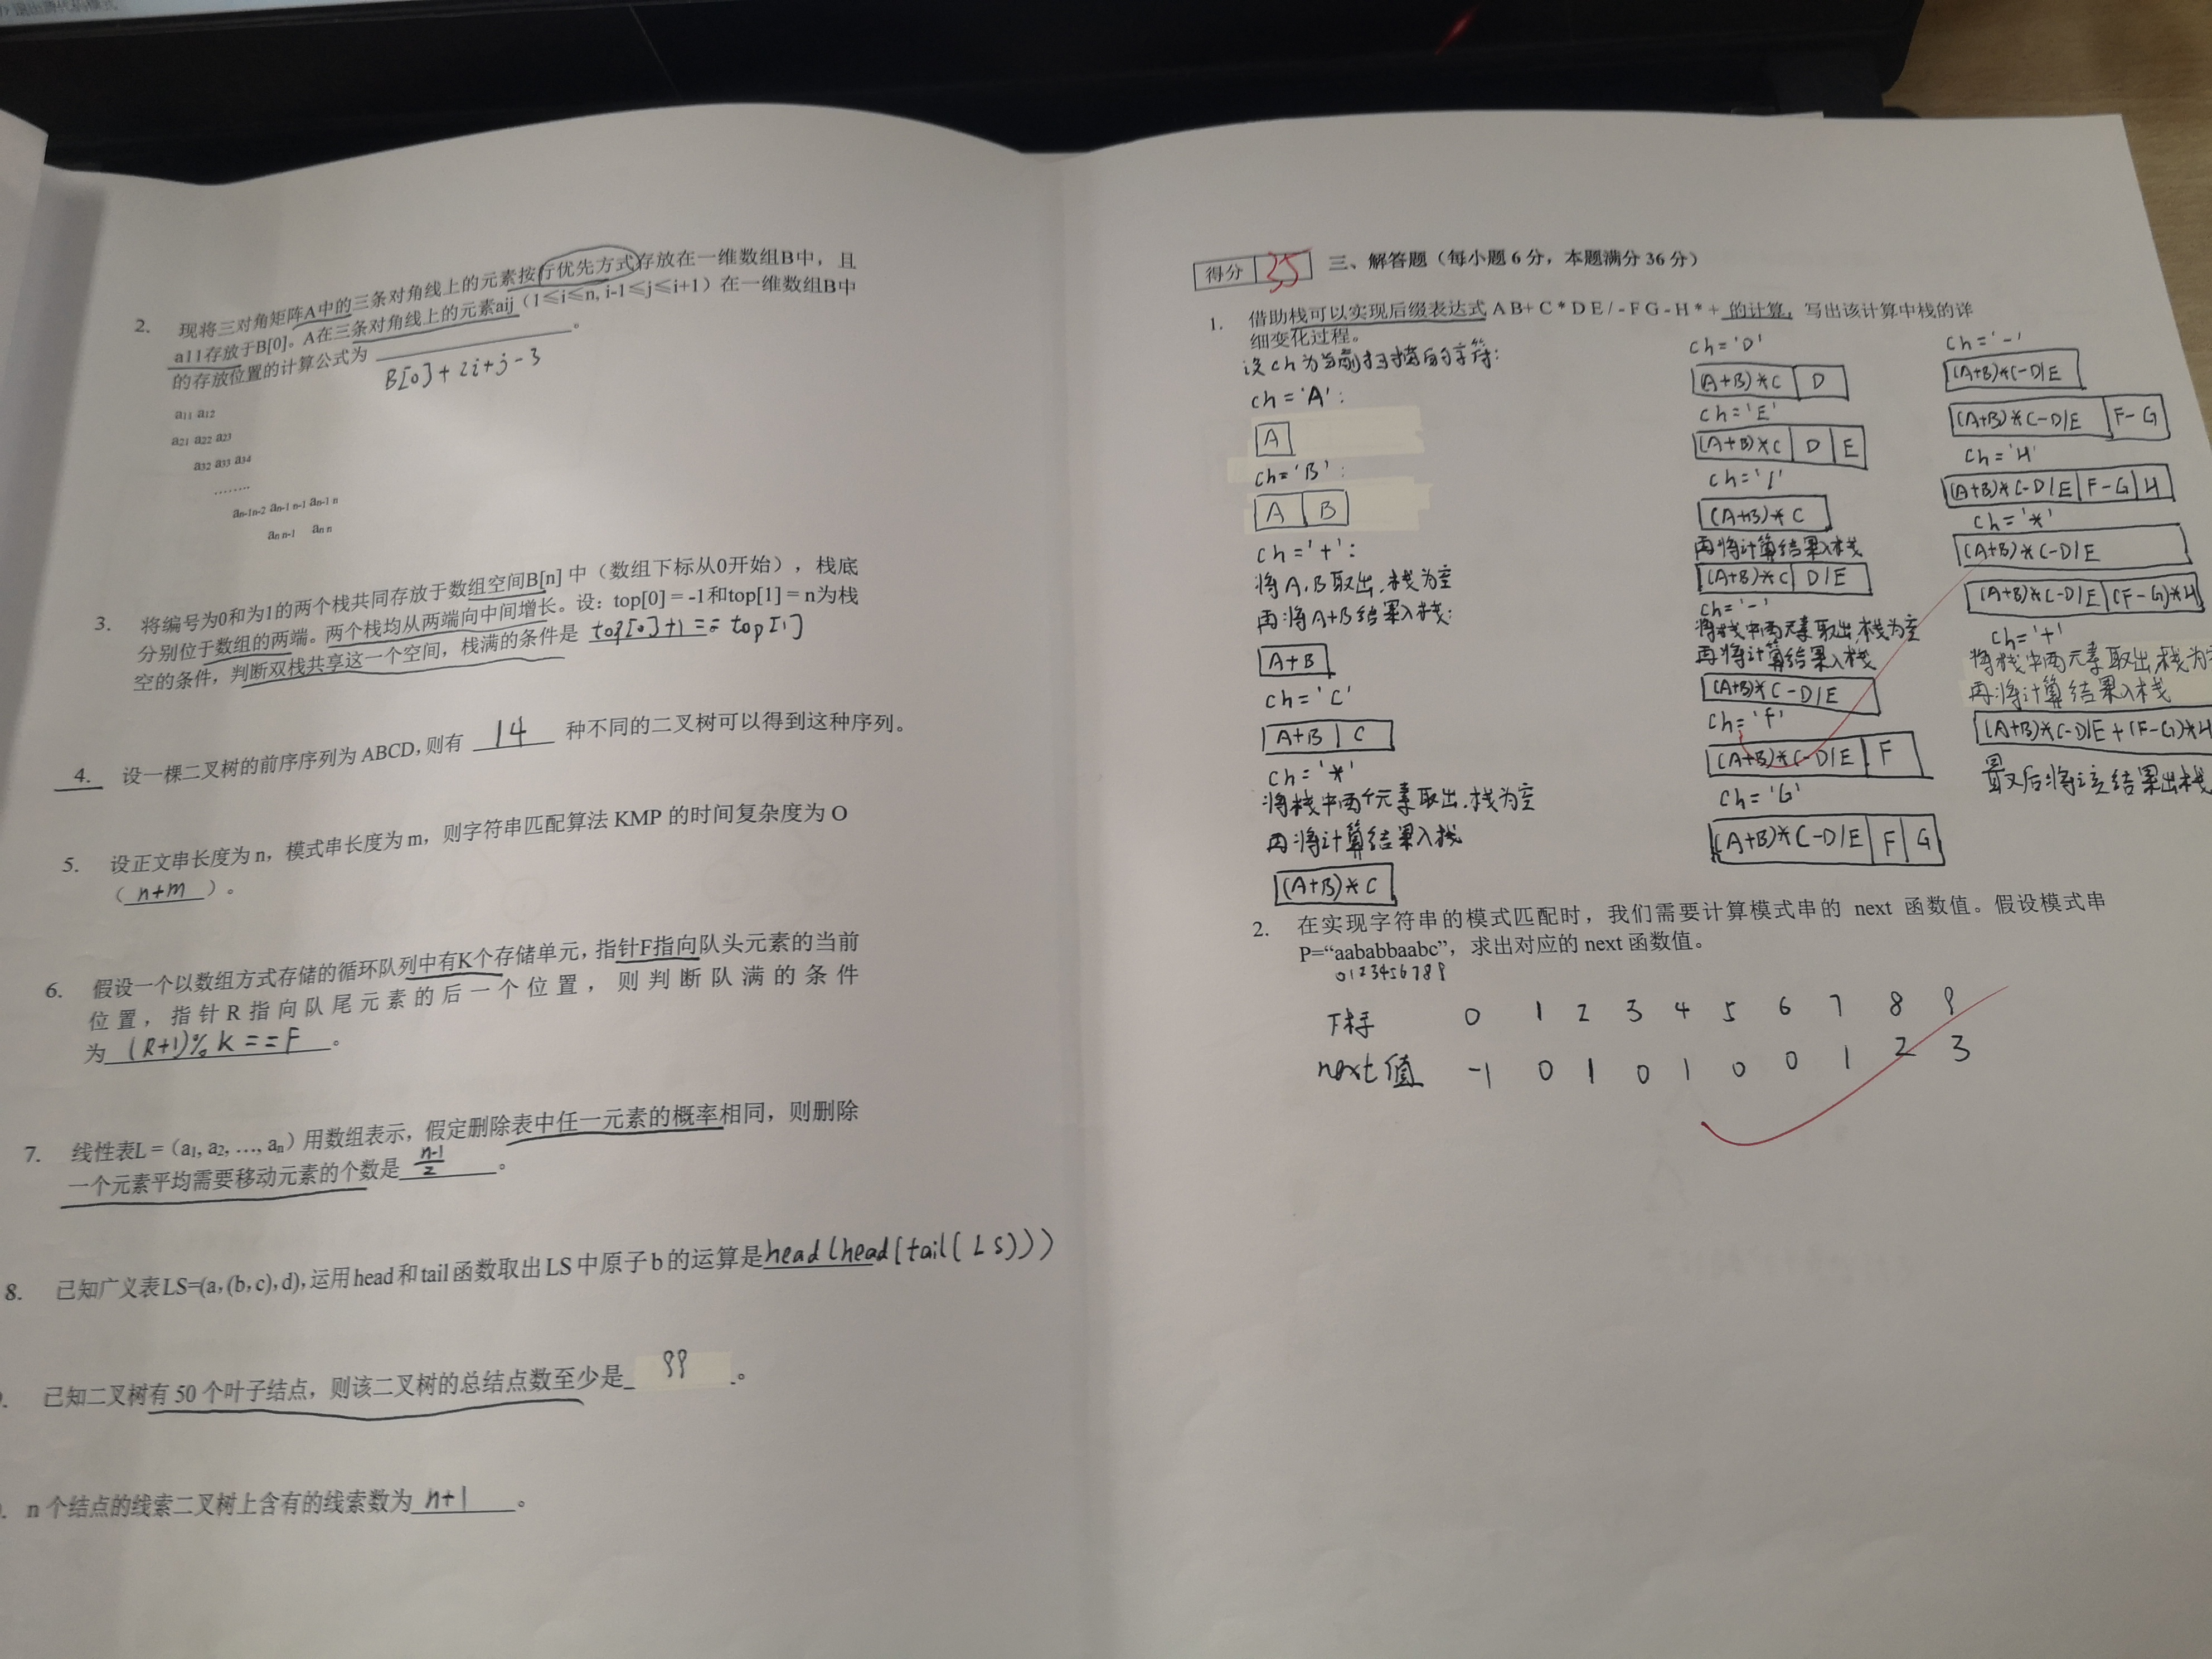 2. 现将三对角矩阵A中的三条对角线上的元素按行优先方式存放在一维数组B中，且
a11存放于B[0]。A在三条对角线上的元素aij（1≤i≤n, i-1≤j≤i+1）在一维数组B中
的存放位置的计算公式为 。
B[0]+2i+j-3
a11 a12
a21 a22 a23
a32 a33 a34
........
an-1n-2 an-1 n-1 an-1 n
an n-1 an n
3. 将编号为0和为1的两个栈共同存放于数组空间B[n] 中（数组下标从0开始），栈底
分别位于数组的两端。两个栈均从两端向中间增长。设：top[0] = -1和top[1] = n为栈
空的条件，判断双栈共享这一个空间，栈满的条件是 top[0]+1 == top[1]
4. 设一棵二叉树的前序序列为 ABCD，则有 14 种不同的二叉树可以得到这种序列。
5. 设正文串长度为 n，模式串长度为 m，则字符串匹配算法 KMP 的时间复杂度为 O
（n+m）。
6. 假设一个以数组方式存储的循环队列中有K个存储单元，指针F指向队头元素的当前
位置，指针R指向队尾元素的后一个位置，则判断队满的条件
为 (R+1)% K == F 。
7. 线性表L =（a1, a2, …, an）用数组表示，假定删除表中任一元素的概率相同，则删除
一个元素平均需要移动元素的个数是 n-1/2 。
8. 已知广义表LS=(a, (b, c), d), 运用head和tail函数取出LS中原子b的运算是head(head(tail(LS)))
. 已知二叉树有 50 个叶子结点，则该二叉树的总结点数至少是 99 。
. n 个结点的线索二叉树上含有的线索数为 n+1 。
得分 35 三、解答题（每小题 6 分，本题满分 36 分）
1. 借助栈可以实现后缀表达式 A B + C * D E / - F G - H * + 的计算，写出该计算中栈的详
细变化过程。
设ch为当前扫描后的字符：
ch='A'：
A
ch='B'：
A B
ch='+'：
将A、B取出，栈为空
再将A+B结果入栈：
A+B
ch='C'
A+B C
ch='*'
将栈中两个元素取出，栈为空
再将计算结果入栈
(A+B)*C
ch='D'
(A+B)*C D
ch='E'
(A+B)*C D E
ch='/'
(A+B)*C
再将计算结果入栈
(A+B)*C D/E
ch='-'
将栈中两元素取出，栈为空
再将计算结果入栈
(A+B)*C-D/E
ch='F'
(A+B)*C-D/E F
ch='G'
(A+B)*C-D/E F G
ch='-'
(A+B)*C-D/E
(A+B)*C-D/E F-G
ch='H'
(A+B)*C-D/E F-G H
ch='*'
(A+B)*C-D/E
(A+B)*C-D/E (F-G)*H
ch='+'
将栈中两元素取出，栈为
再将计算结果入栈
(A+B)*C-D/E+(F-G)*H
最后将该结果出栈
2. 在实现字符串的模式匹配时，我们需要计算模式串的 next 函数值。假设模式串
P=“aababbaabc”，求出对应的 next 函数值。
0123456789
下标 0 1 2 3 4 5 6 7 8 9
next值 -1 0 1 0 1 0 0 1 2 3